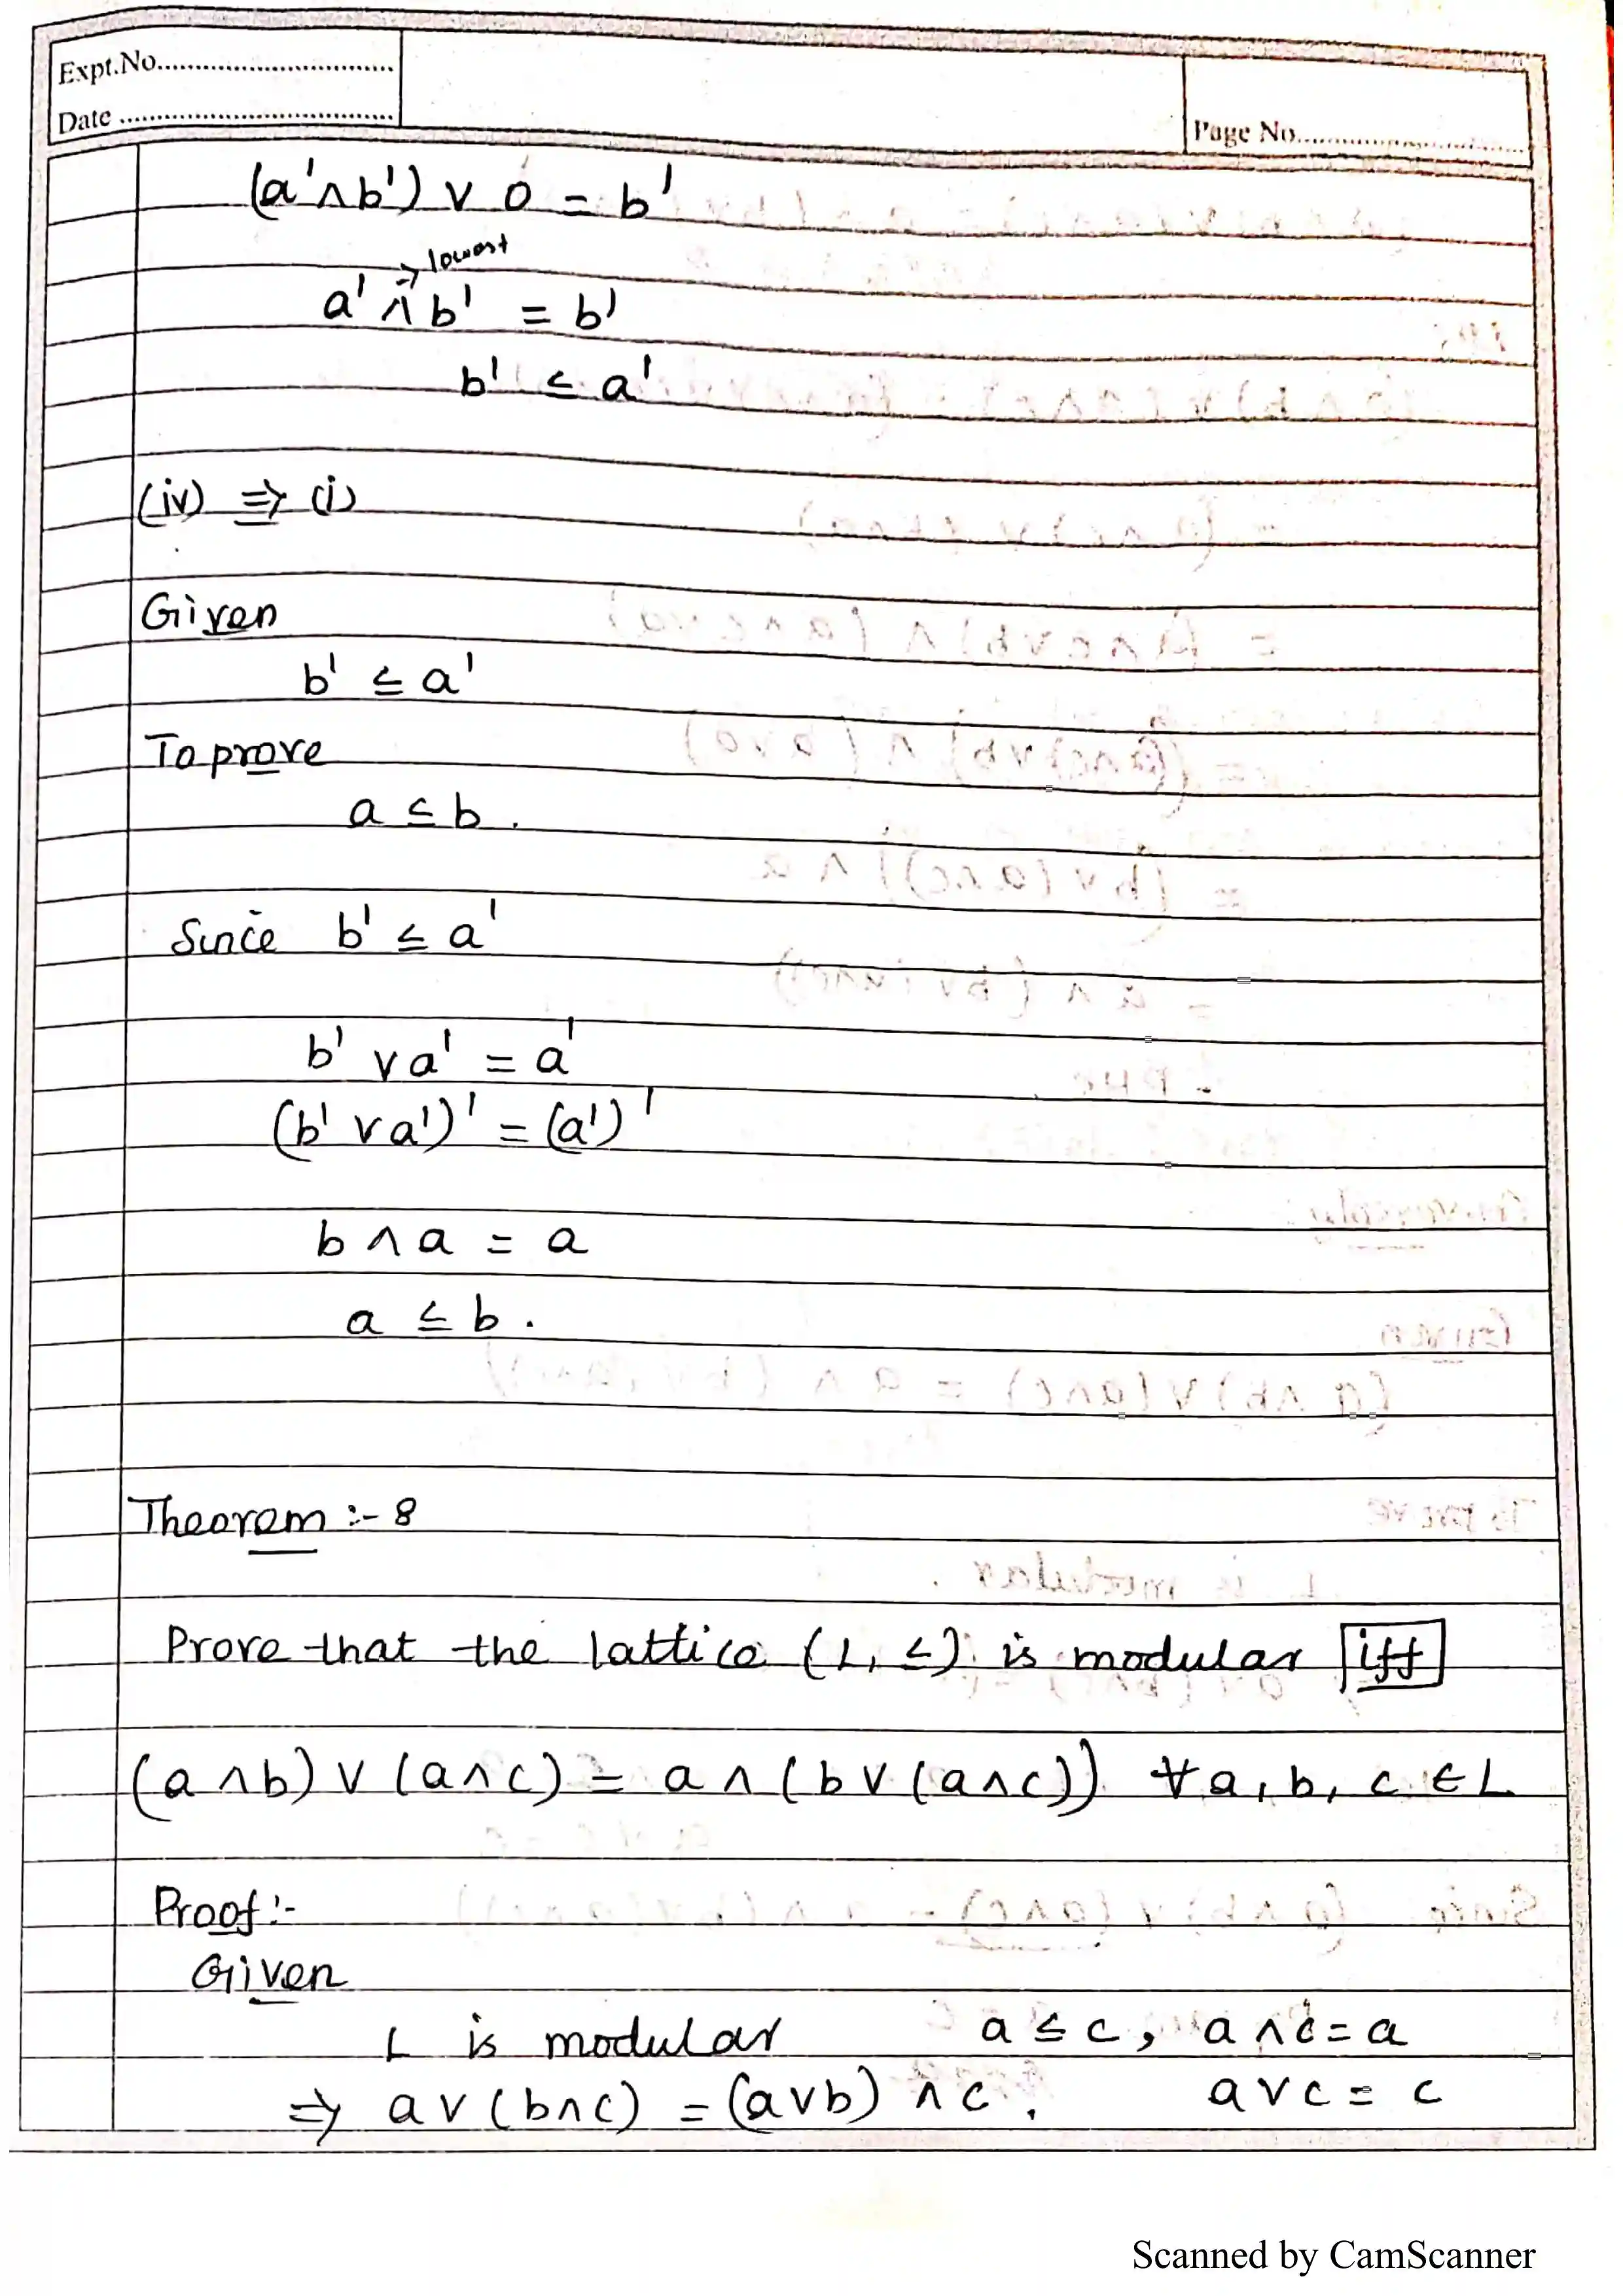 Expt.No..............................
Date ..................................
Page No..............................
(a'∧b') ∨ 0 = b'
→ lowest
a' ∧ b' = b'
b' ≤ a'
(iv) ⇒ (i)
Given
b' ≤ a'
To prove
a ≤ b.
Since b' ≤ a'
b' ∨ a' = a'
(b' ∨ a')' = (a')'
b ∧ a = a
a ≤ b.
Theorem :- 8
Prove that the lattice (L, ≤) is modular iff
(a ∧ b) ∨ (a ∧ c) = a ∧ (b ∨ (a ∧ c)) ∀ a, b, c ∈ L
Proof :-
Given
L is modular a ≤ c, a ∧ c = a
⇒ a ∨ (b ∧ c) = (a ∨ b) ∧ c. a ∨ c = c
Scanned by CamScanner